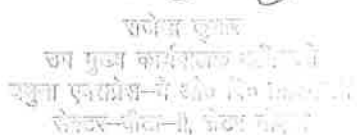 राजेन्द्र कुमार
उप मुख्य कार्यपालक
यमुना एक्सप्रेस-वे औ० वि०
सेक्टर-बीटा-II, ग्रेटर